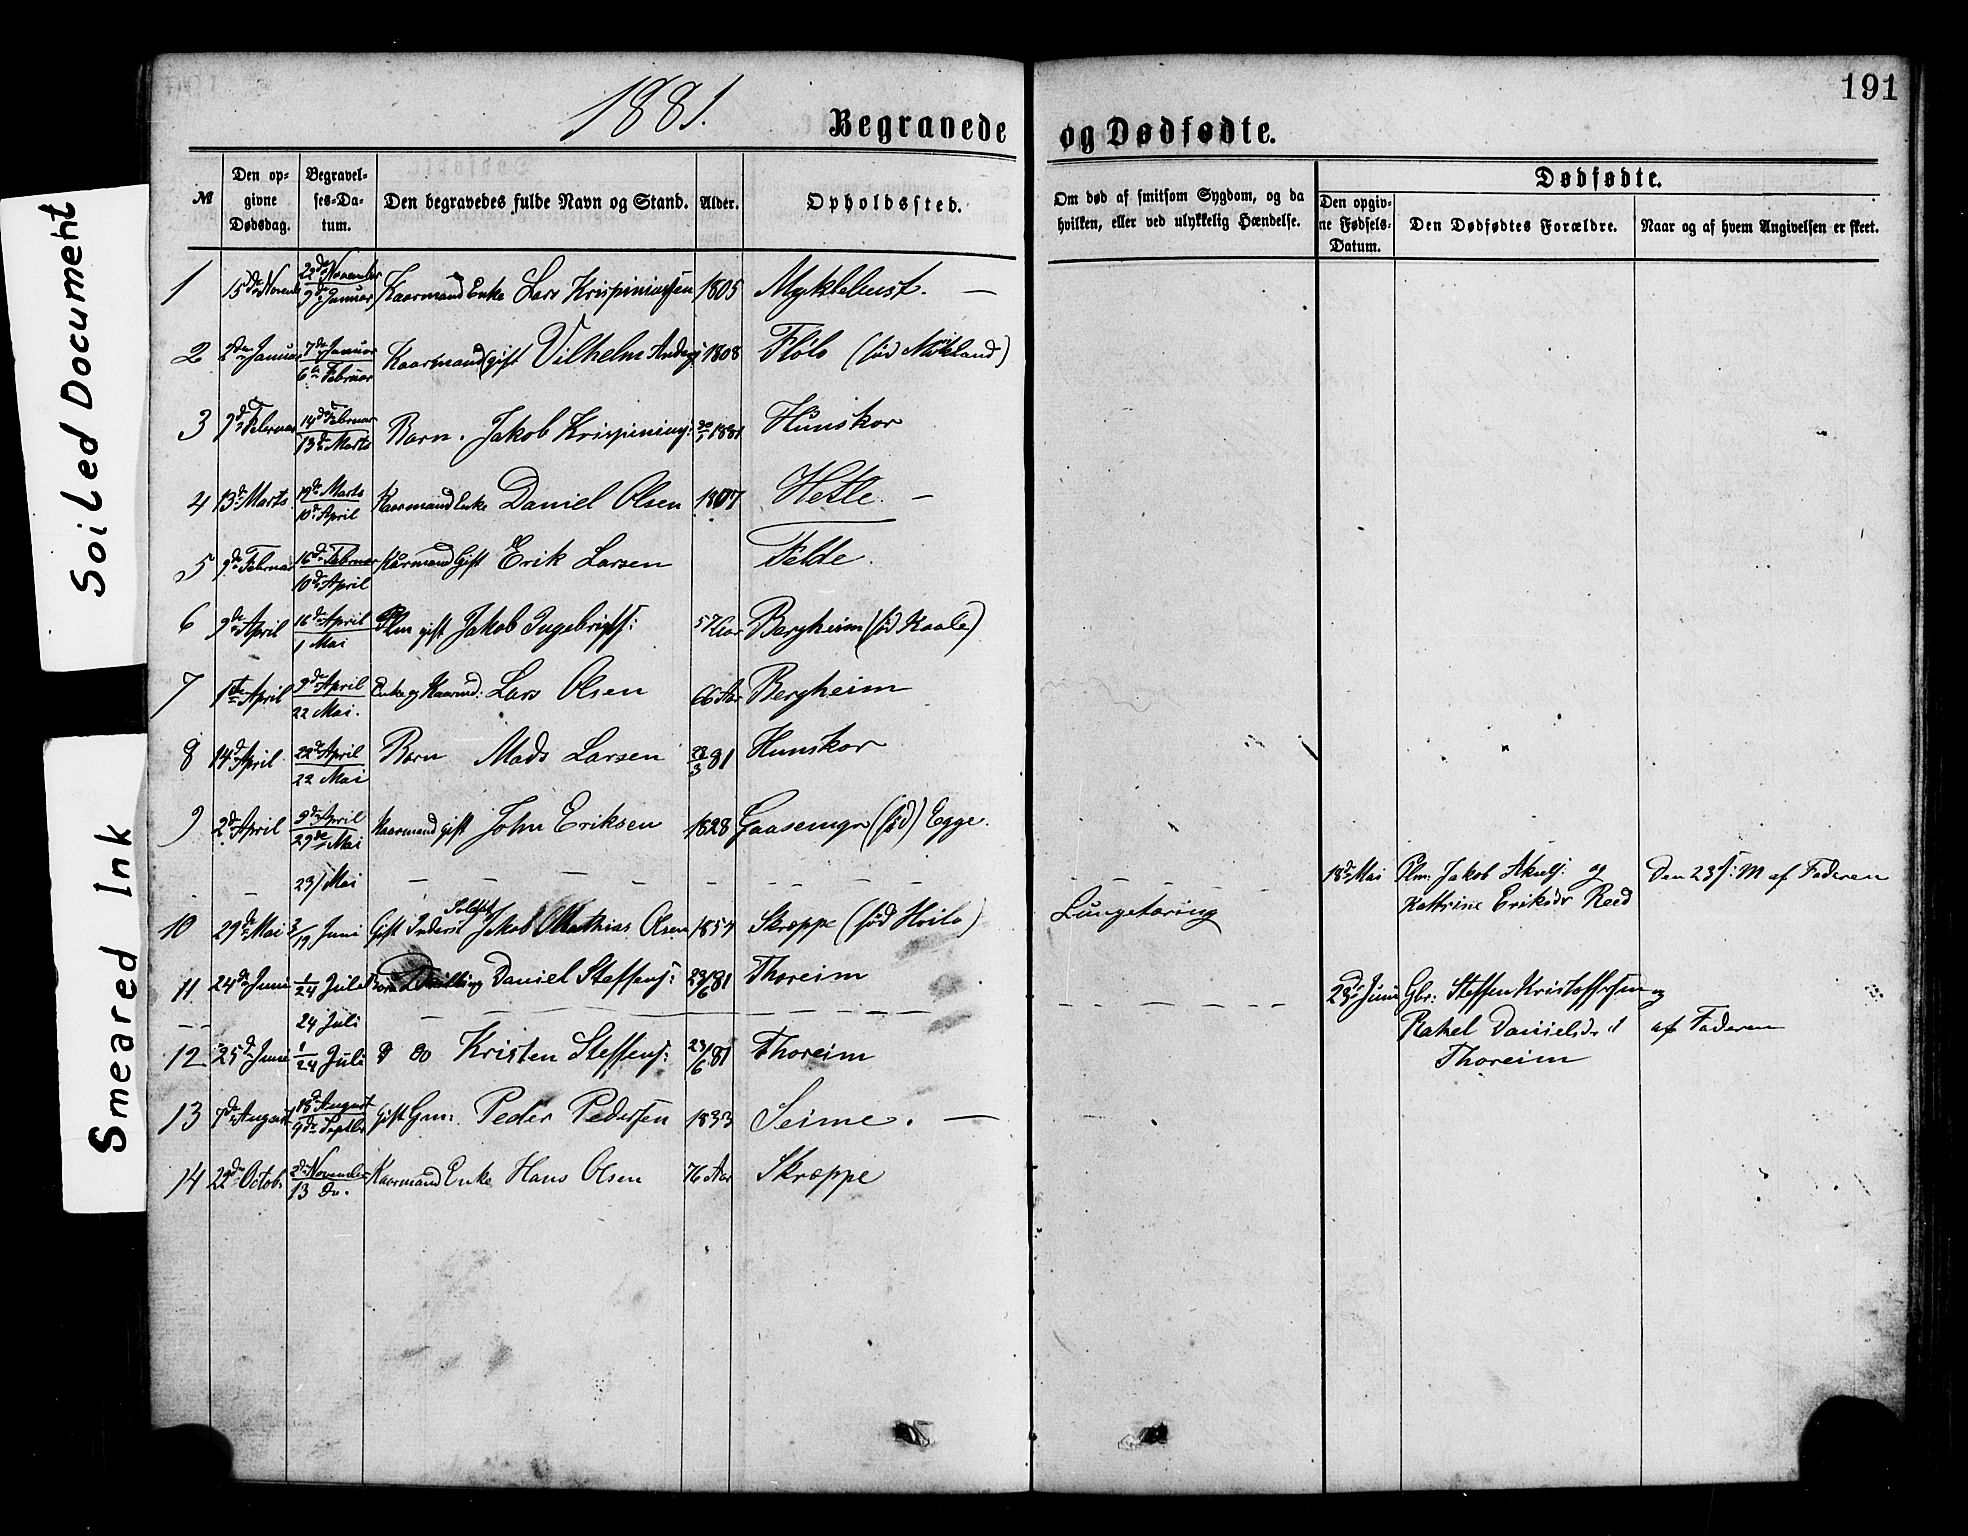 191
1881.
Begravede og Dødfødte.
№
Den op-
givne
Dødsdag.
Begravel-
ses-Da-
tum.
Den begravedes fulde Navn og Stand.
Alder.
Opholdssted.
Om død af smitsom Sygdom, og da
hvilken, eller ved ulykkelig Hændelse.
Dødfødte.
Den opgiv-
ne Fødsels-
Datum.
Den Dødfødtes Forældre.
Naar og af hvem Angivelsen er skeet.
Soiled Document
Smeared Ink
1 15de Novemb 22de November Kaarmand Enke Lars Krispiniussen 1805 Myklebust. —
9de Januar
2 2den Januar 7de Januar Kaarmand (gift Vilhelm Anders: 1808 Flölo (föd Mörkland)
6te Februar
3 9de Februar 14de Februar Barn. Jakob Krispinius: 1881 Hunskor
13de Marts
4 13de Marts. 19de Marts Kaarmand Enke Daniel Olsen 1807 Hetle. —
10de April
5 9de Februar 16de Februar Kårmand Gift Erik Larsen Felde.
10de April
6 9de April 16de April Plm gift Jakob Ingebrigts: 57 Aar Bergheim (föd Kaale)
1 Mai
7 1ste April 9de April Enke og Kaarmd: Lars Olsen 66 Aar Bergheim
22 Mai.
8 14de April 22de April Barn Mads Larsen 23/3 81 Hunskor
22 Mai
9 2de April 9de April Kaarmand gift John Eriksen 1828 Gaasemyr (föd) Egge.
29de Mai
— 23/ Mai — — — — 18de Mai Plm: Jakob Aksels: og Den 23 s: M af Faderen
Kattrine Eriksdr Reed
10 29de Mai 3/19 Juni Gift Inderst Soldat Jakob Mathias Olsen 1857 Skræppe (föd Hvilo) Lungetæring
11 24de Juni 1/24 Juli Barn Tvilling Daniel Steffens: 23/6 81 Thoreim
— 24 Juli — — — — 23de Juni Gbr: Steffen Kristoffersen og
Rakel Danielsdr af Faderen
Thoreim
12 25de Juni 1/24 Juli d do Kristen Steffens: 23/6 81 Thoreim
13 7de August 13de August Gift Gm: Peder Pedersen 1833 Seime. —
9de Septbr
14 22de Octob. 2de November Kaarmand Enke Hans Olsen 76 Aar Skræppe
13 Do.